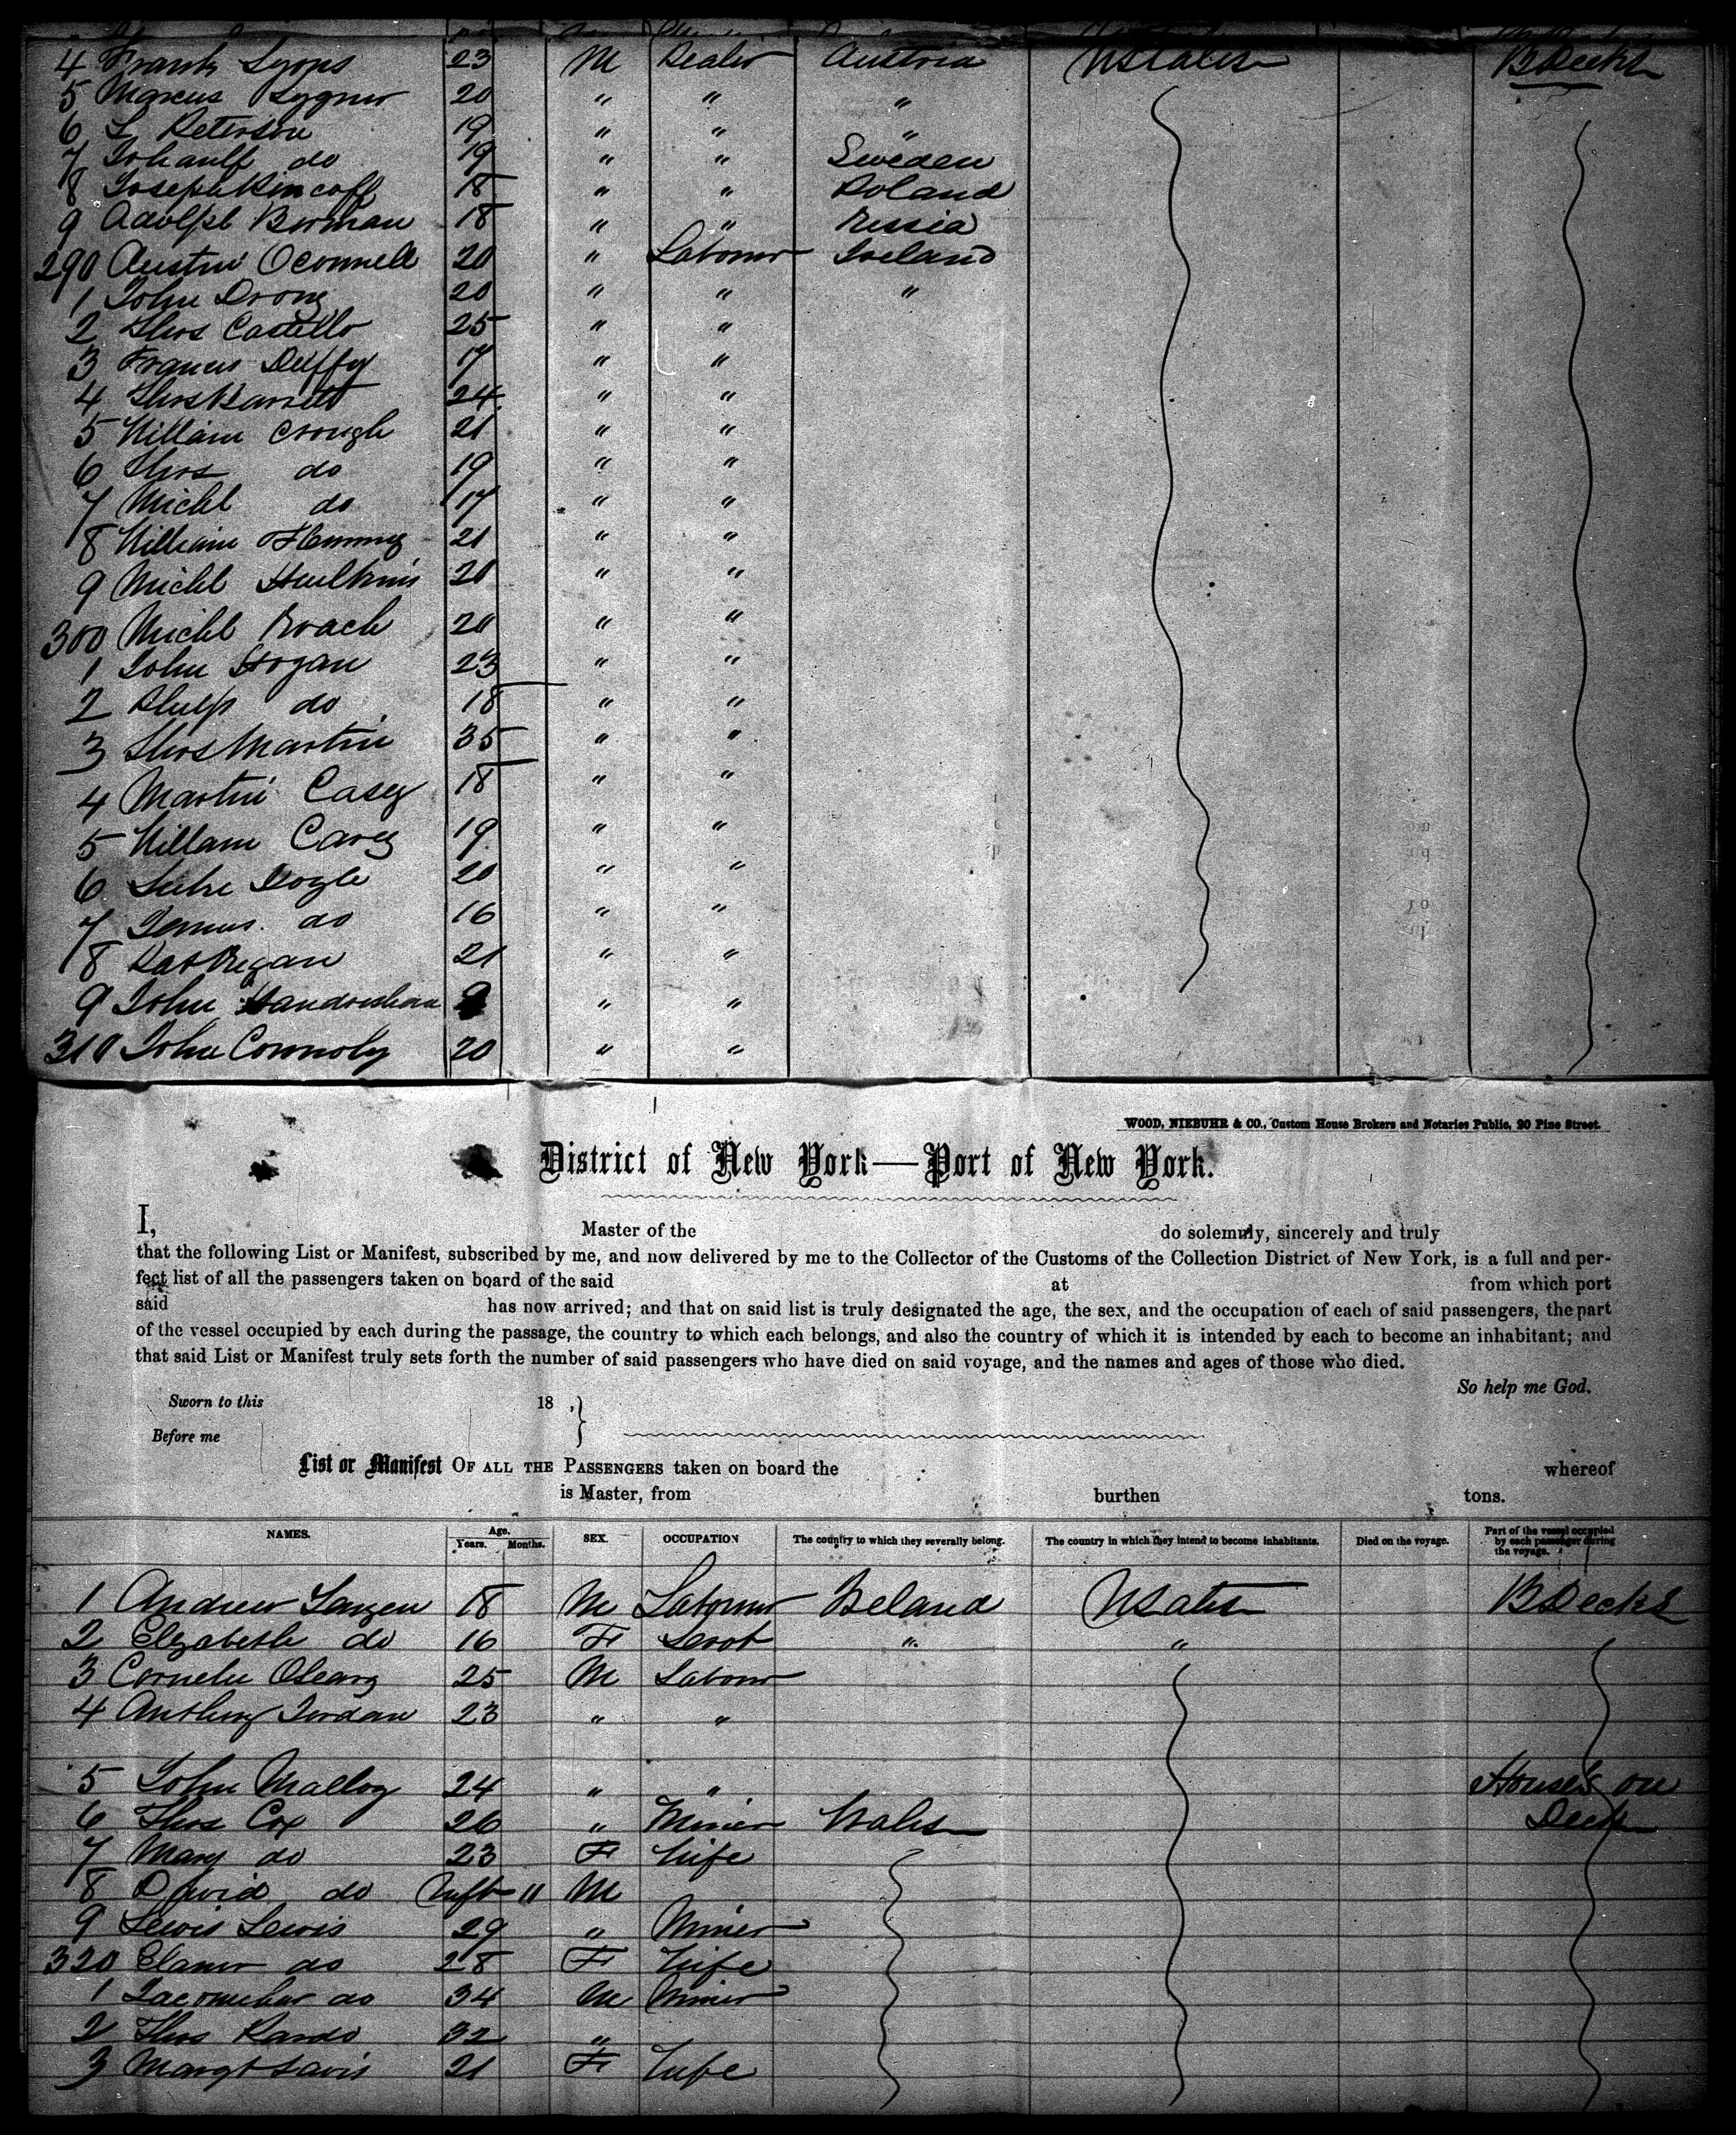 4 Frank Lyons 23 M Dealer Austria UStates BDecks
5 Marcus 20 " " "
6 L Peterson 19 " " "
7 do 19 " " Sweden
8 Joseph 18 " " Poland
9 Adolph Borman 18 " " Russia
290 Austin Oconnell 20 " Labourer Ireland
1 John 20 " " "
2 Thos Castello 25 " "
3 Francis Duffy 17 " "
4 Thos Barrett 24 " "
5 William Crough 21 " "
6 Thos do 19 " "
7 Michl do 17 " "
8 William Flemming 21 " "
9 Michl 20 " "
300 Michl Roach 20 " "
1 John Hogan 23 " "
2 Philip do 18 " "
3 Thos Martin 35 " "
4 Martin Casey 18 " "
5 Willam Carey 19 " "
6 Luke Doyle 20 " "
7 do 16 " "
8 Pat Regan 21 " "
9 John " "
310 John Connoly 20 " "
WOOD, NIEBUHR & CO., Custom House Brokers and Notaries Public, 20 Pine Street.
District of New York—Port of New York.
I, Master of the do solemnly, sincerely and truly
that the following List or Manifest, subscribed by me, and now delivered by me to the Collector of the Customs of the Collection District of New York, is a full and per-
fect list of all the passengers taken on board of the said at from which port
said has now arrived; and that on said list is truly designated the age, the sex, and the occupation of each of said passengers, the part
of the vessel occupied by each during the passage, the country to which each belongs, and also the country of which it is intended by each to become an inhabitant; and
that said List or Manifest truly sets forth the number of said passengers who have died on said voyage, and the names and ages of those who died.
So help me God.
Sworn to this 18 ,}
Before me
List or Manifest OF ALL THE PASSENGERS taken on board the whereof
is Master, from burthen tons.
NAMES. Age. Years. Months. SEX. OCCUPATION The country to which they severally belong. The country in which they intend to become inhabitants. Died on the voyage. Part of the vessel occupied by each passenger during the voyage.
1 Andrew 18 M Labourer Ireland UStates BDecks
2 Elizabeth do 16 F Servt " "
3 Cornelu Oleary 25 M Labour
4 Anthony Jordan 23 " "
5 John Malloy 24 " " Houses on
6 Thos Cox 26 " Miner Wales Deck
7 Mary do 23 F Wife
8 David do Inft 11 M
9 Lewis Lewis 29 " Miner
320 Elanor do 28 F Wife
1 do 34 M Miner
2 Thos 32 "
3 Margt Davis 21 F Wife